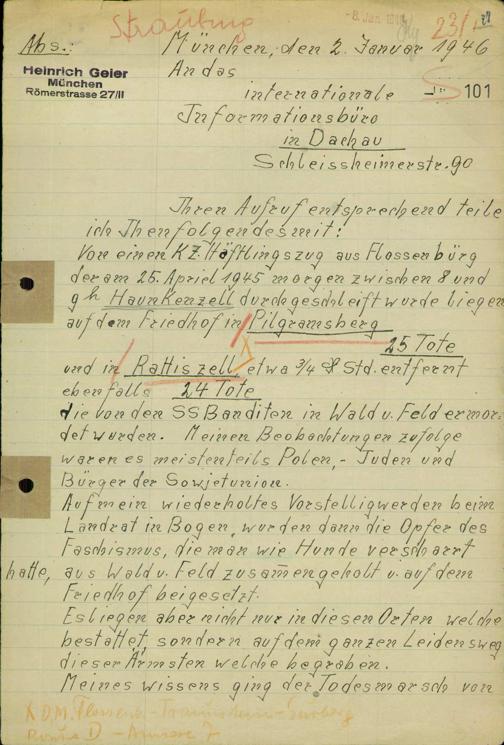 Straubing
-8. Jan. 1946
23/I
Abs.: München, den 2. Januar 1946
Heinrich Geier
München
Römerstrasse 27/II
An das
internationale
101
Informationsbüro
in Dachau
Schleissheimerstr. 90
Ihren Aufruf entsprechend teile
ich Ihnen folgendes mit:
Von einen KZ. Häftlingszug aus Flossenbürg
der am 25. Apriel 1945 morgen zwischen 8 und
9 h Haunkenzell durchgeschleift wurde liegen
auf dem Friedhof in Pilgramsberg
25 Tote
und in Rattiszell etwa 3/4 Std. entfernt
ebenfalls 24 Tote
die von den SS Banditen in Wald u. Feld ermor-
det wurden. Meinen Beobachtungen zufolge
waren es meistenteils Polen,- Juden und
Bürger der Sowjetunion.
Auf mein wiederholtes Vorstelligwerden beim
Landrat in Bogen, wurden dann die Opfer des
Faschismus, die man wie Hunde verscharrt
hatte, aus Wald u. Feld zusam̅engeholt u. auf dem
Friedhof beigesetzt.
Es liegen aber nicht nur in diesen Orten welche
bestattet, sondern auf dem ganzen Leidensweg
dieser Ärmsten welche begraben.
Meines wissens ging der Todesmarsch von